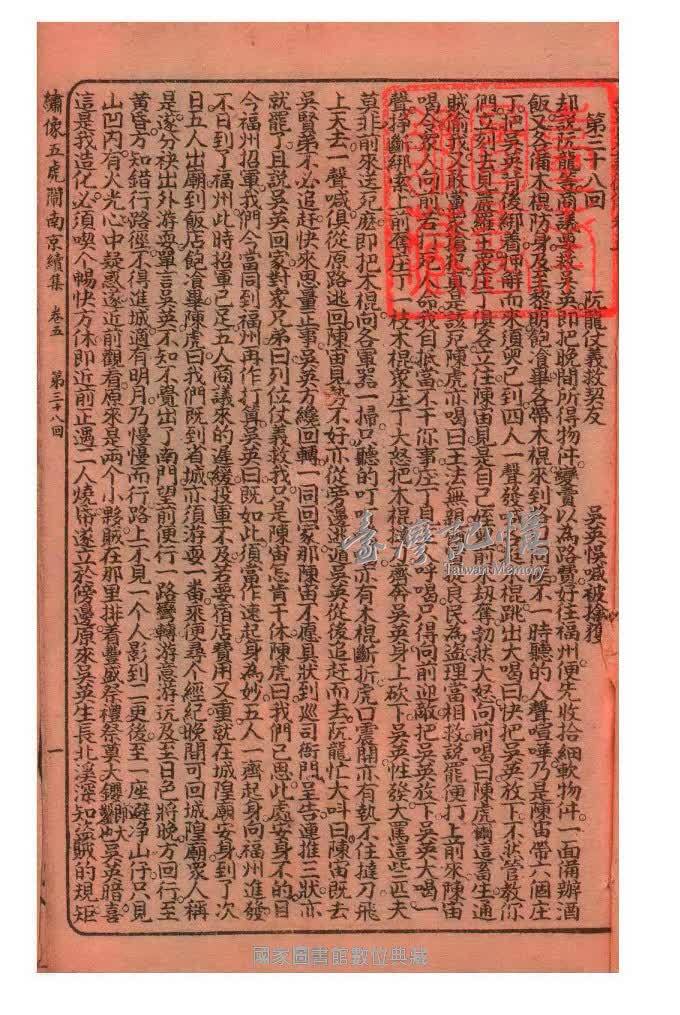 第三十八回 阮龍仗義救契友 吳英悞喊被擒獲
却說阮龍等商議要救吳英即把晚間所得物件變賣以為路費好往福州便先收拾細軟物件一面備辦酒
飯又各備木棍防身及至黎明飽飡畢各帶木棍來到 不一時聽的人聲喧嘩乃是陳宙帶六個庄
丁把吳英背後綁着押解而來須臾已到四人一聲發 棍跳出大喝曰快把吳英放下不狀管教你
們立刻去見閻羅王眾庄丁俱各立住陳宙見是自己侄 前來刼奪勃然大怒向前喝曰陳虎爾這畜生通
賊偷我又敢 來搶犯真是該死陳虎亦喝曰王法無親 良民為盜理當相救說罷便打上前來陳宙
喝令眾人向前若打死人命我自抵當不干你事庄丁 呼喝只得向前迎敵把吳英放下吳英大喝一
聲掙斷綁索上前奪庄丁一枝木棍眾庄丁大怒把木棍 齊奔吳英身上砍下吳英性發大罵這些匹夫
莫非前來送死麼即把木棍向各軍器一掃只聽的叮 亦有木棍斷折虎口震開亦有執不住撻刀飛
上天去一聲喊俱從原路逃回陳宙見勢不好亦從旁邊逃過吳英從後追赶而去阮龍忙大呌曰陳宙既去
吳賢弟不必追赶快來思量正事吳英方纔回轉一同回家那陳宙不愿具狀到巡司衙門呈告連推三狀亦
就罷了且說吳英回家對眾兄弟曰列位仗義救我只是陳宙怎肯干休陳虎曰我們已思此處安身不的目
今福州招軍我們今當同到福州再作打算吳英曰既如此須當作速起身為妙五人一齊起身向福州進發
不日到了福州此時招軍已足五人商議來的遲緩投軍不及若要宿店費用又重就在城隍廟安身到了次
日五人出廟到飯店飽飡畢陳虎曰我們既到省城亦須游耍一番乘便尋個經紀晚間可回城隍廟眾人稱
是遂分袂出外游耍單言吳英不知不覺出了南門望前便行一路彎轉游意游玩及至日色將晚方回行至
黃昏方知錯行路徑不得進城適有明月乃慢慢而行路上不見一个人影到二更後至一座避净山仔只見
山凹內有火光心中疑惑遂近前觀看原來是兩个小夥賊在那里排着豐盛祭禮祭奠大鑼 吳英暗喜
這是我造化必須喫个暢快方休即近前正遇二人燒帛遂立於傍邊原來吳英生長北溪深知盜賊的規矩
繡像五虎鬧南京續集 卷五 第三十八回 一
臺灣記憶
Taiwan Memory
國家圖書館數位典藏